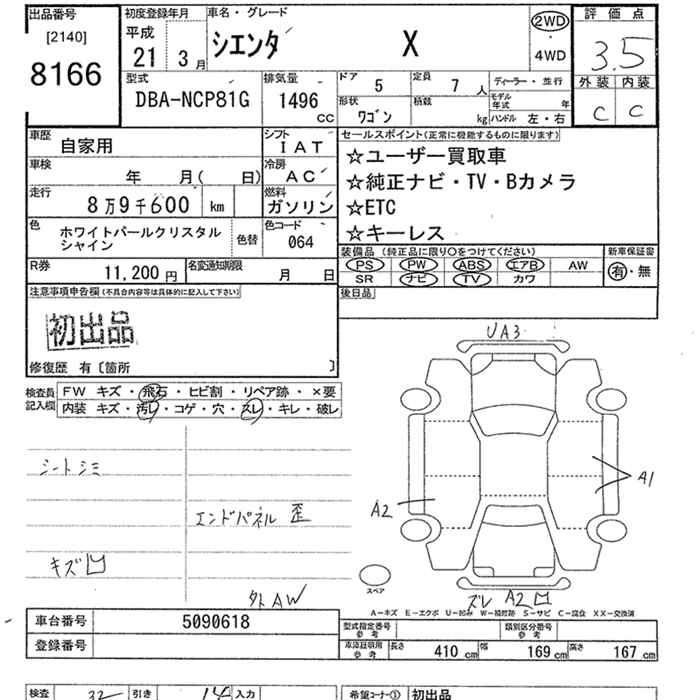 出品番号
[2140]
8166
初度登録年月
平成
21 3月
車名・グレード
シエンタ X
2WD
・
4WD
評価点
3.5
外装 内装
C C
型式
DBA-NCP81G
排気量
1496
cc
ドア 5
定員 7人
ディーラー・並行
形状 ワゴン
積載 kg
モデル年式 年
ハンドル 左・右
車歴 自家用
シフト IAT
車検 年 月( 日)
冷房 AC
走行 8万9千600 km
燃料 ガソリン
色 ホワイトパールクリスタルシャイン
色替
色コード 064
R券 11,200円
名変通知期限 月 日
セールスポイント(正常に機能するものに限ります)
☆ユーザー買取車
☆純正ナビ・TV・Bカメラ
☆ETC
☆キーレス
装備品(純正品に限り○をつけてください)
新車保証書
PS PW ABS エアB AW
有・無
SR ナビ TV カワ
後日品
注意事項申告欄(不具合内容等は具体的に記入して下さい)
初出品
修復歴 有〔箇所 〕
検査員記入欄
FW キズ・飛石・ヒビ割・リペア跡・×要
内装 キズ・汚レ・コゲ・穴・スレ・キレ・破レ
シートシミ
エンドパネル 歪
キズ凹
外AW
UA3
A1
A2
スペア
ズレ A2凹
A-キズ E-エクボ U-凹み W-補修跡 S-サビ C-腐食 XX-交換済
車台番号 5090618
登録番号
型式指定番号 参考
類別区分番号 参考
車庫証明用 参考
長さ 410cm
幅 169cm
高さ 167cm
検査
引き
入力
希望コーナー① 初出品